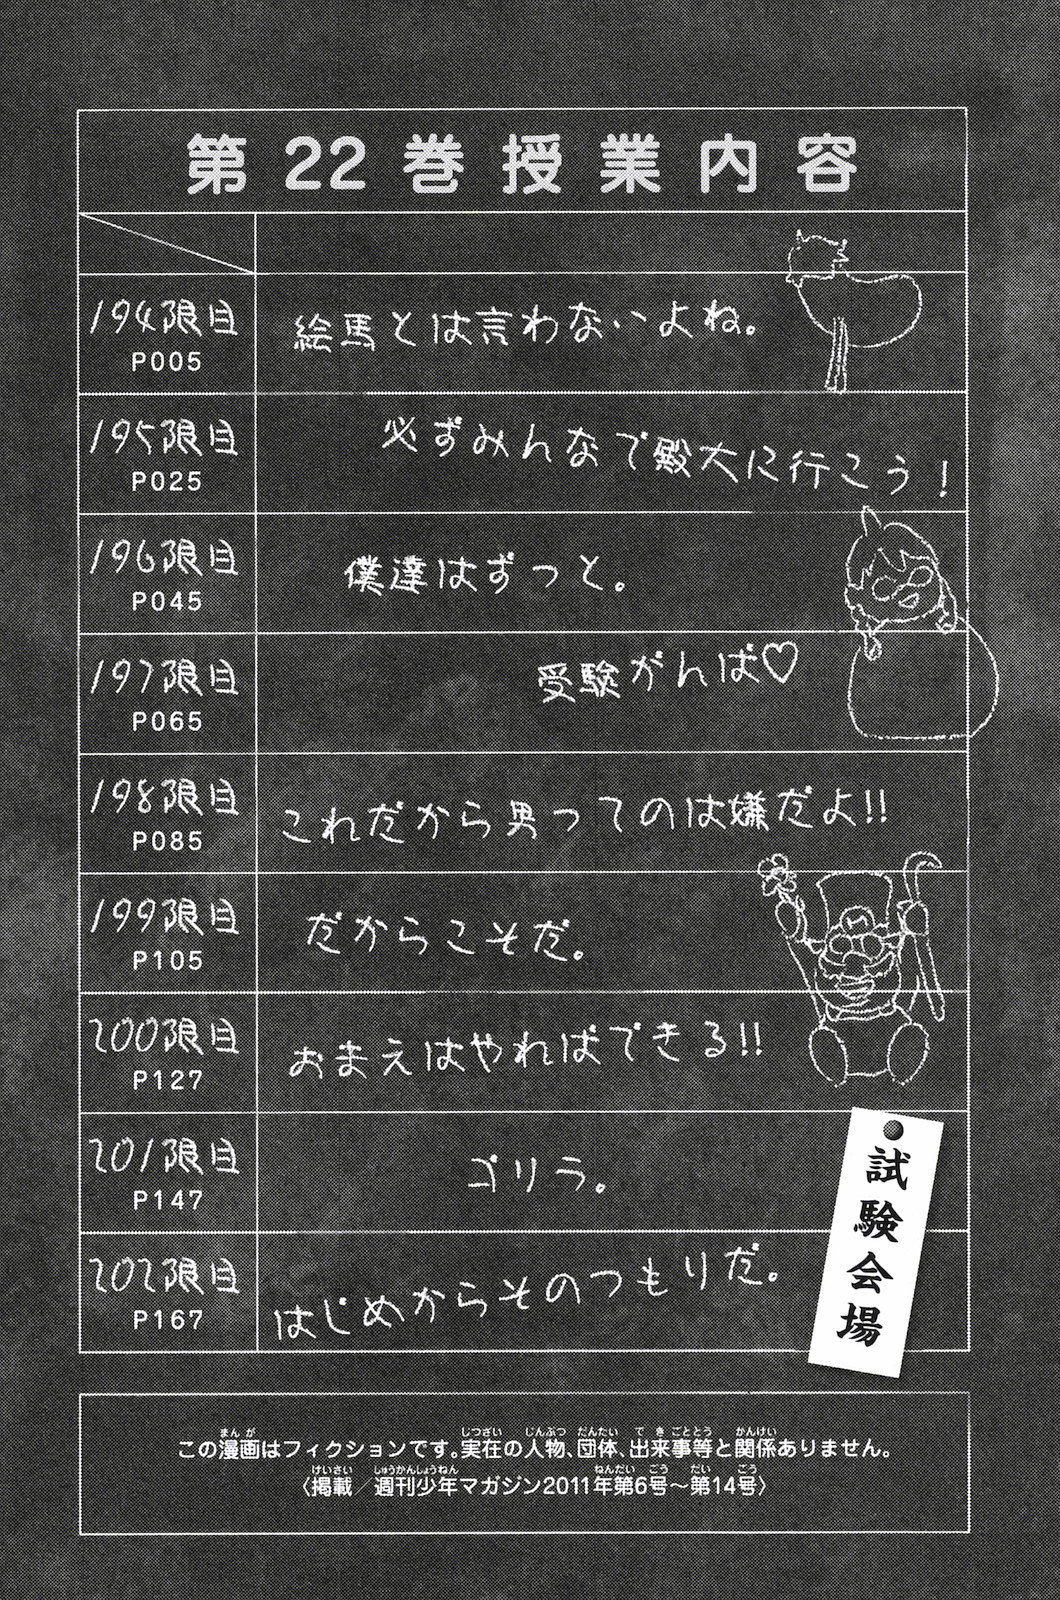 第22巻授業内容
194限目
P005
絵馬とは言わないよね。
195限目
P025
必ずみんなで殿大に行こう！
196限目
P045
僕達はずっと。
197限目
P065
受験がんば♡
198限目
P085
これだから男ってのは嫌だよ!!
199限目
P105
だからこそだ。
200限目
P127
おまえはやればできる!!
201限目
P147
ゴリラ。
202限目
P167
はじめからそのつもりだ。
試験会場
まんが しつざい じんぶつ だんたい できごととう かんけい
この漫画はフィクションです。実在の人物、団体、出来事等と関係ありません。
けいさい しゅうかんしょうねん ねんだい ごう だい ごう
〈掲載／週刊少年マガジン2011年第6号～第14号〉